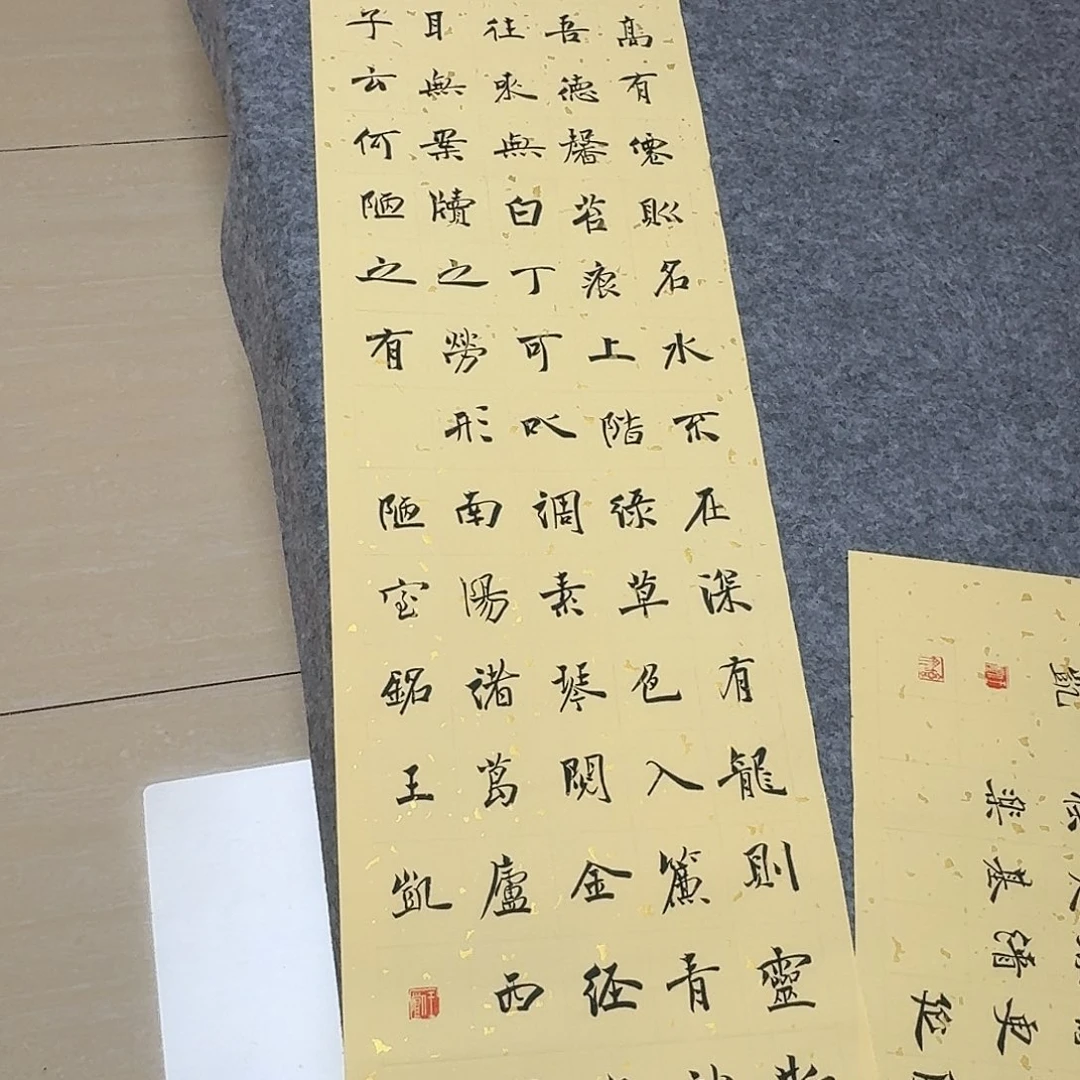 高有僊則名水不在深有龍則靈斯
吾德馨苔痕上階綠草色入簾青
往來無白丁可以調素琴閱金經
耳無案牘之勞形南陽諸葛廬西
子云何陋之有
陋室銘王凱
凱